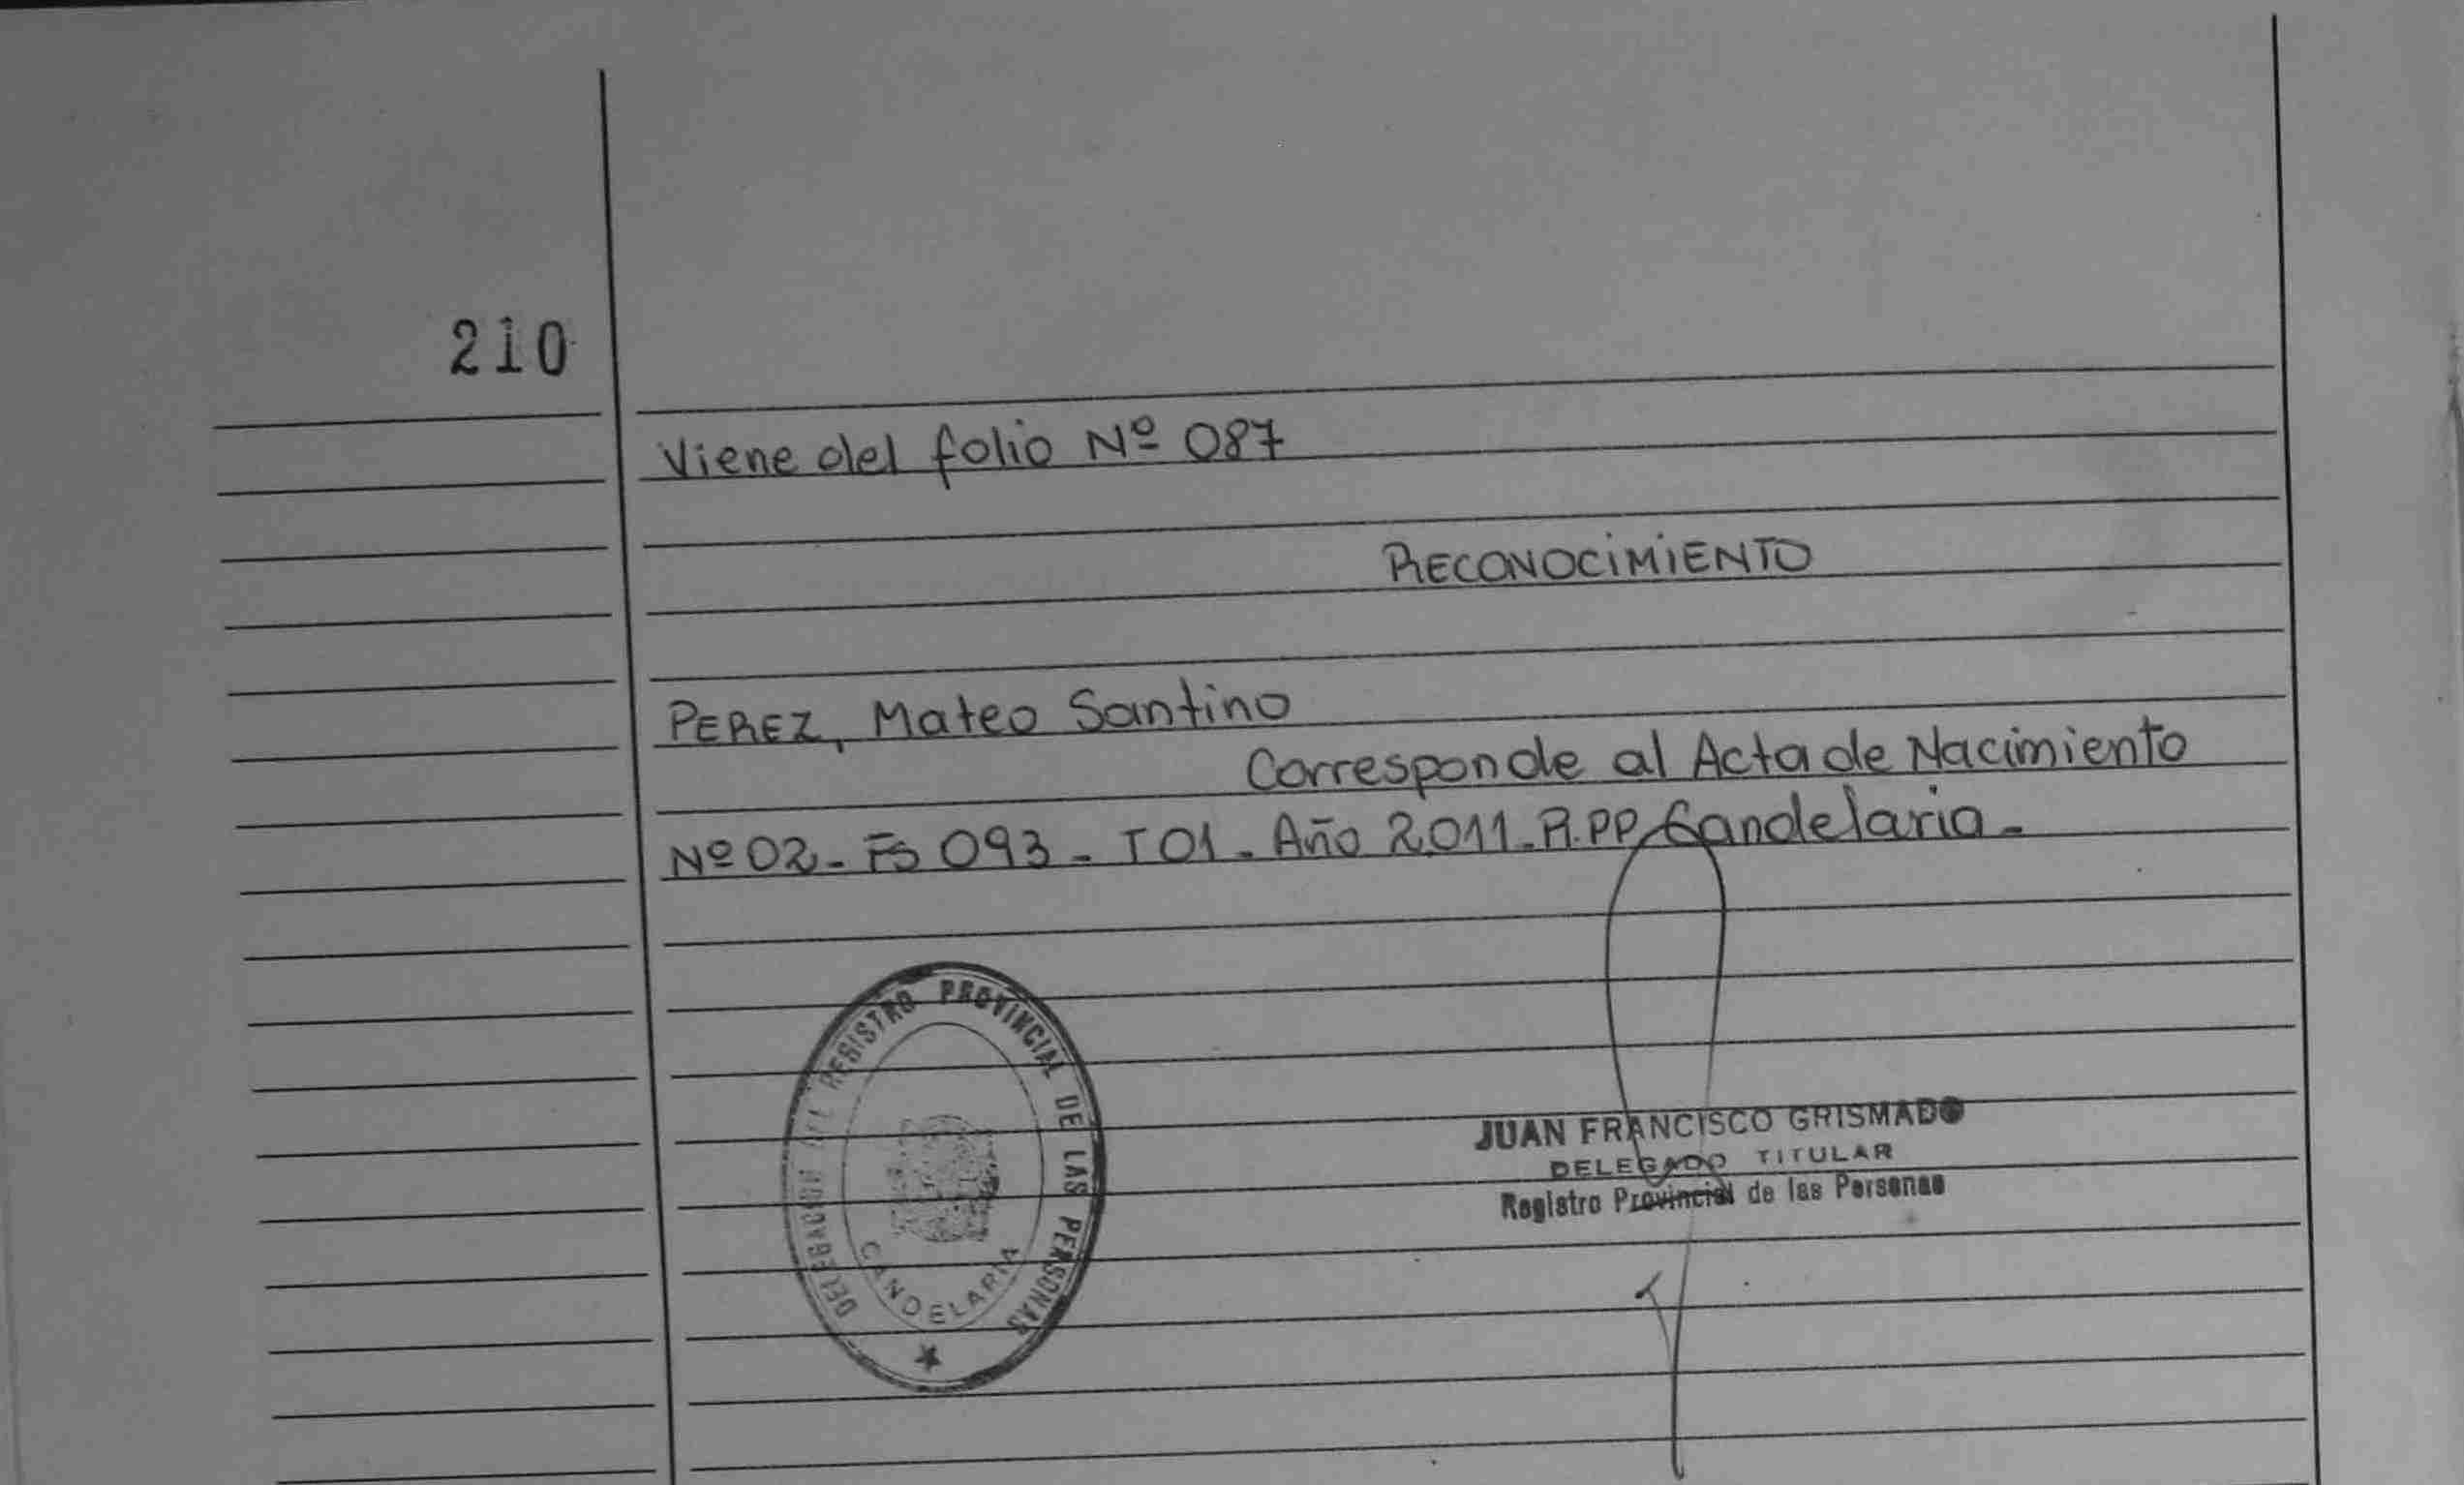 210
Viene del folio Nº 087
RECONOCIMIENTO
PEREZ, Mateo Santino
Corresponde al Acta de Nacimiento
Nº 02 - Fs 093 - T 01 - Año 2.011 - R.PP. Candelaria -
REGISTRO PROVINCIAL DE LAS PERSONAS
CANDELARIA
JUAN FRANCISCO GRISMADO
DELEGADO TITULAR
Registro Provincial de las Personas